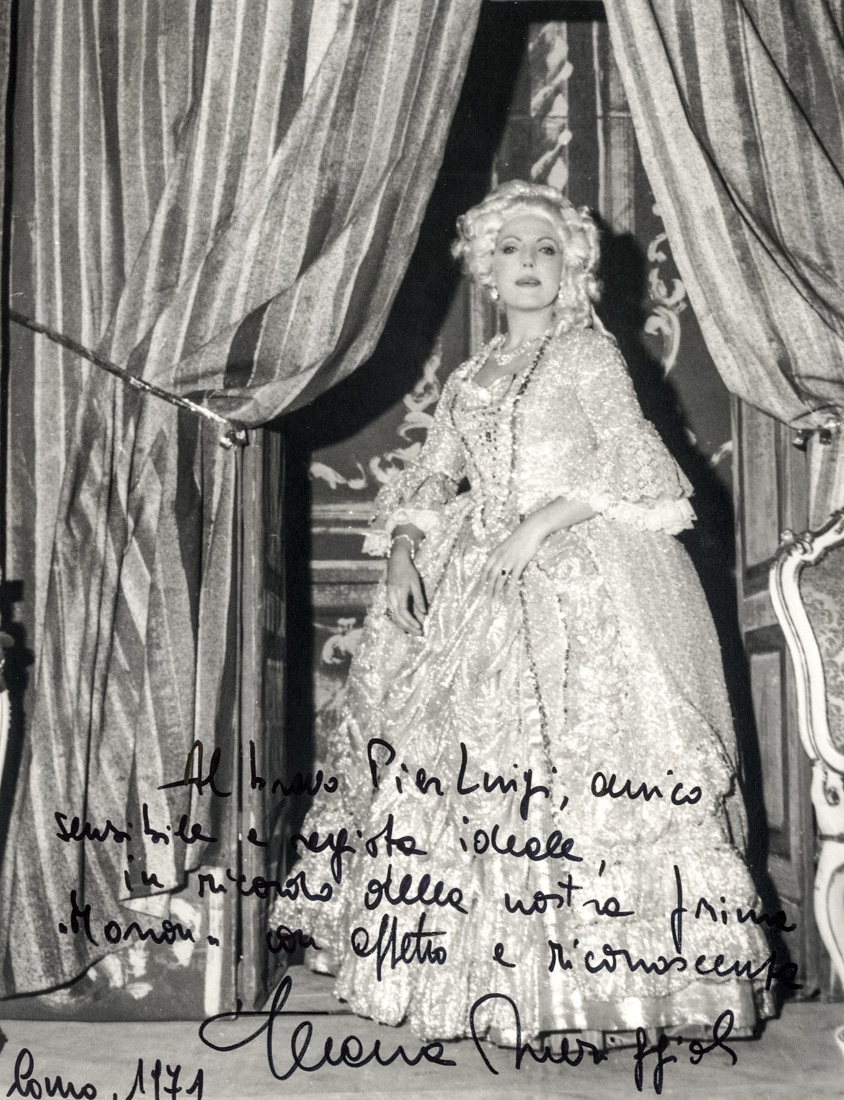 Al bravo Pier Luigi, amico
sensibile e regista ideale,
in ricordo della nostra prima
"Manon" con affetto e riconoscenza
Ileana Meriggioli
Como, 1971